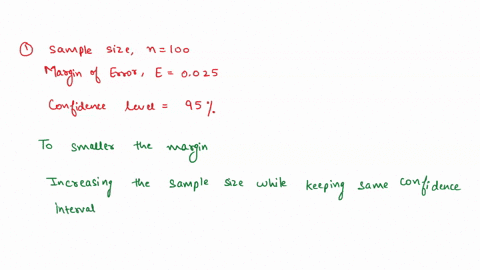 ① Sample size, n = 100
Margin of Error, E = 0.025
Confidence level = 95%
To smaller the margin
Increasing the sample size while keeping same confidence
interval